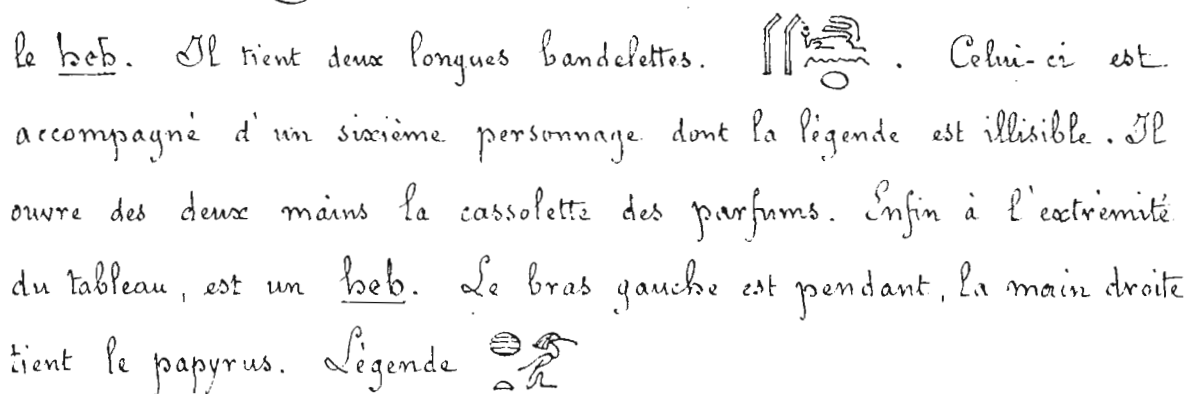 le heb. Il tient deux longues bandelettes. . Celui-ci est
accompagné d'un sixième personnage dont la légende est illisible. Il
ouvre des deux mains la cassolette des parfums. Enfin à l'extrémité
du tableau, est un heb. Le bras gauche est pendant, la main droite
tient le papyrus. Légende